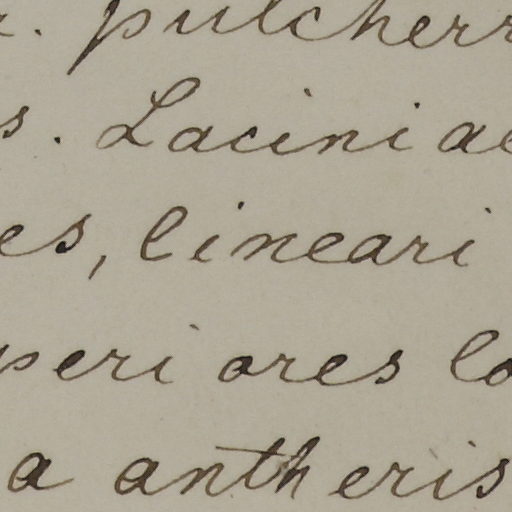 . pulcherr
s. Laciniae
es, lineari
periores lo
a antheris